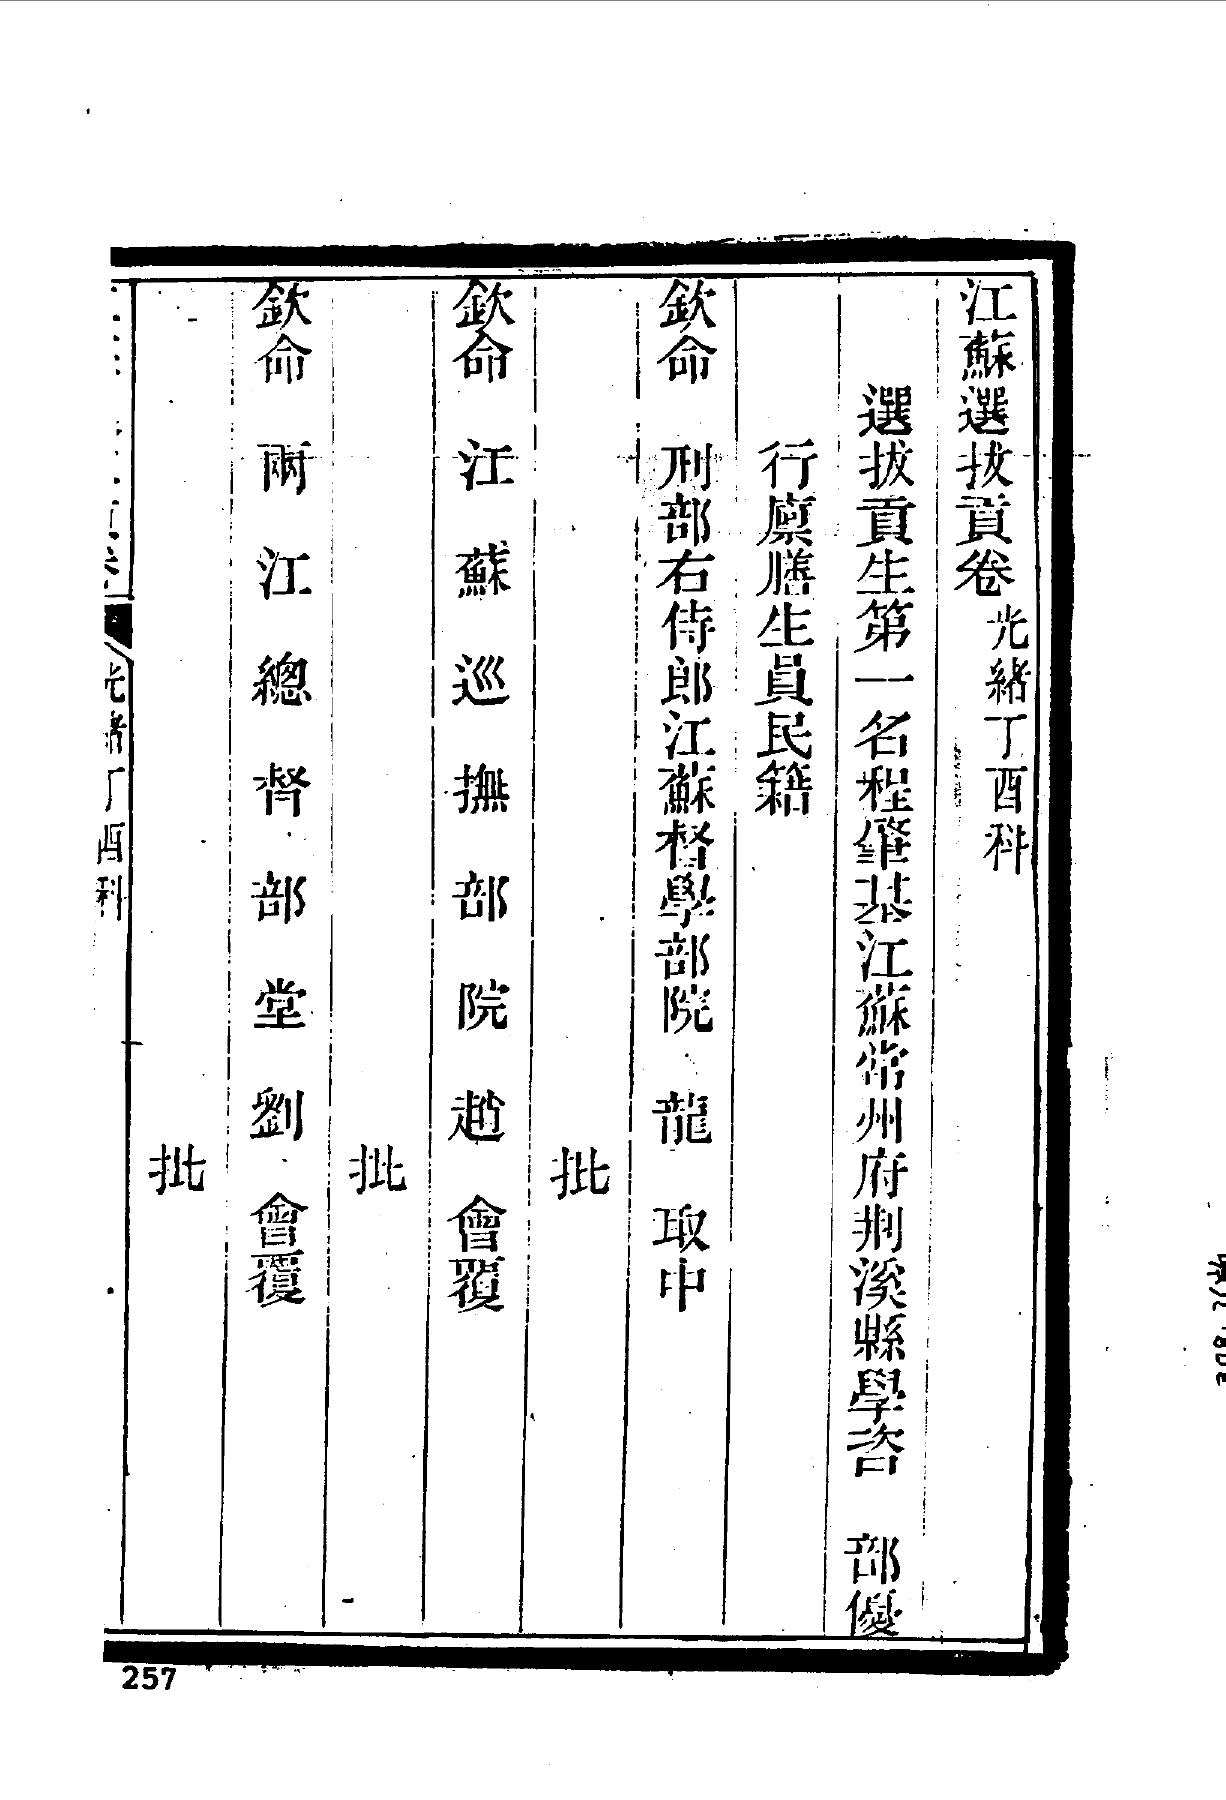 江蘇選拔貢卷 光緒丁酉科
選拔貢生第一名程肇基江蘇常州府荆溪縣學咨 部優
行廩膳生員民籍
欽命 刑部右侍郎江蘇督學部院 龍 取中
批
欽命 江蘇巡撫部院趙 會覆
批
欽命 兩江總督部堂劉 會覆
批
光緒丁酉科
257